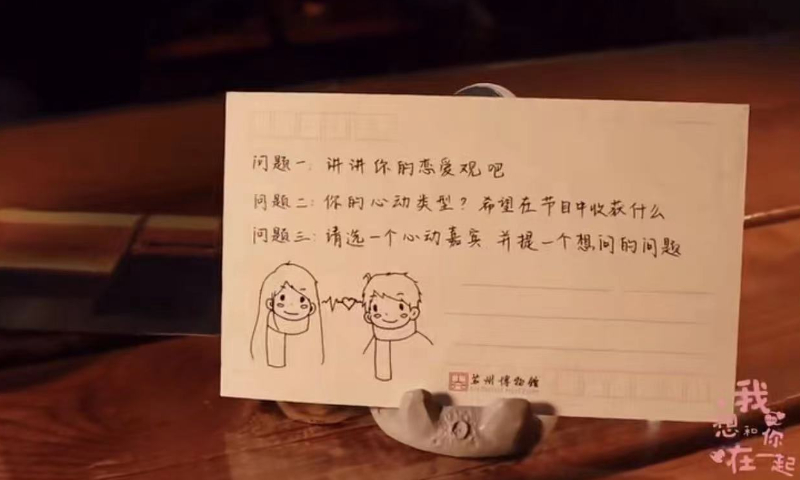 问题一：讲讲你的恋爱观吧
问题二：你的心动类型？希望在节目中收获什么
问题三：请选一个心动嘉宾 并提一个想问的问题
苏州博物馆
我想和你在一起